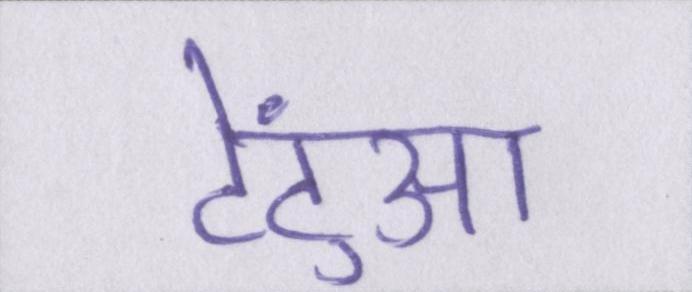 टेटुंआ